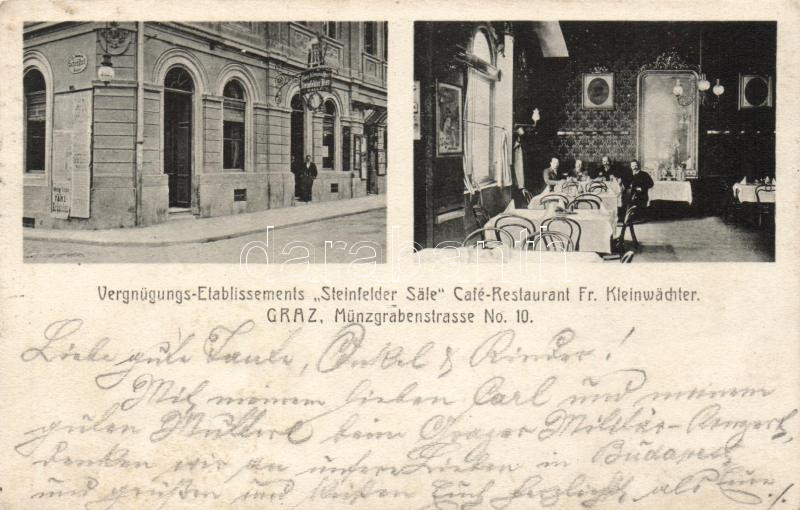 Vergnügungs-Etablissements „Steinfelder Säle“ Café-Restaurant Fr. Kleinwächter.
GRAZ, Münzgrabenstrasse No. 10.
darabanth
Liebe gute Tante, Onkel & Kinder!
Mit meinem lieben Carl und meinem
guten Mutterl beim Grazer Militär-Konzert,
denken wir an unsere Lieben in Budapest
und grüßen und küssen Euch herzlichst als Eure ./.